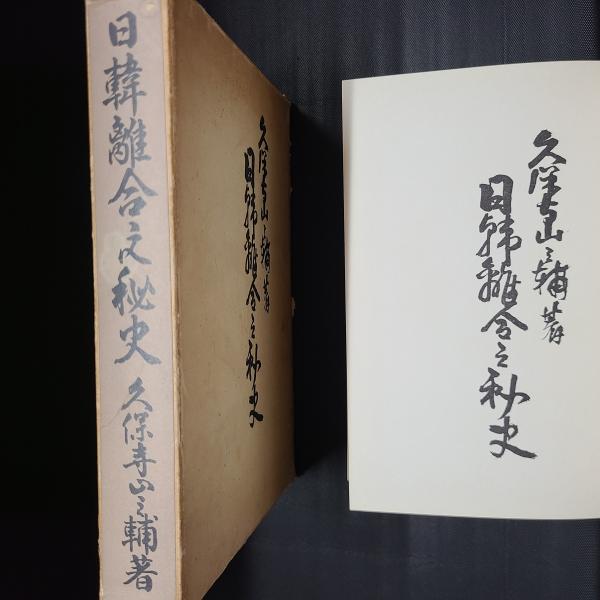 日韓離合之秘史 久保寺山之輔著
久保寺山之輔著
日韓離合之秘史
久保寺山之輔著
日韓離合之秘史